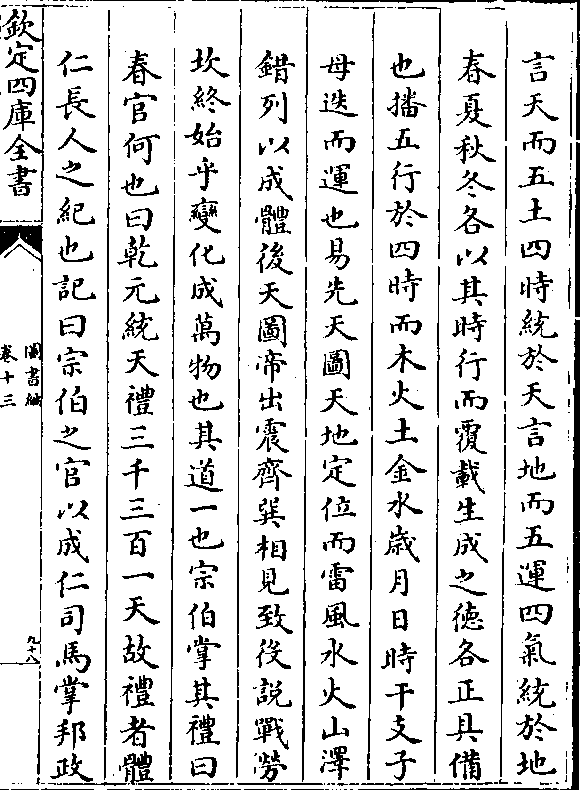 言天而五土四時統於天言地而五運四氣統於地
春夏秋冬各以其時行而覆載生成之徳各正具備
也播五行於四時而木火土金水歳月日時干支子
母迭而運也易先天圖天地定位而雷風水火山澤
錯列以成體後天圖帝出震齊巽相見致役説戰勞
坎終始乎變化成萬物也其道一也宗伯掌其禮曰
春官何也曰乾元統天禮三千三百一天故禮者體
仁長人之紀也記曰宗伯之官以成仁司馬掌邦政
欽定四庫全書
圖書編
卷十三
九十八